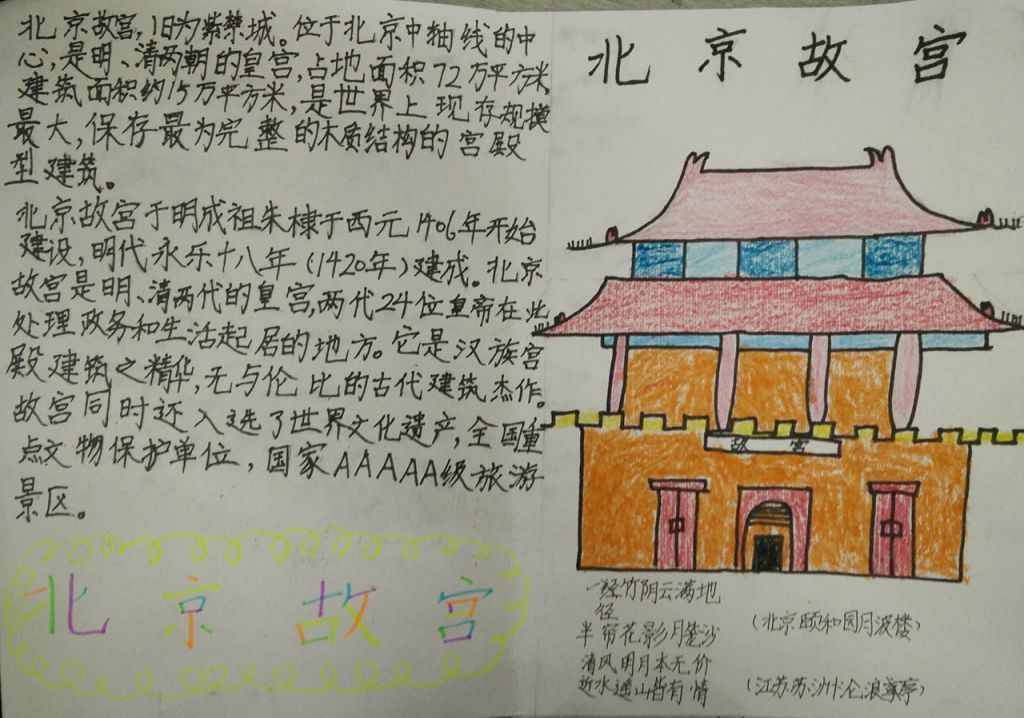 北京故宫,旧为紫禁城。位于北京中轴线的中
心,是明、清两朝的皇宫,占地面积72万平方米
建筑面积约15万平方米,是世界上现存规模
最大,保存最为完整的木质结构的宫殿
型建筑。
北京故宫于明成祖朱棣于西元1406年开始
建设,明代永乐十八年(1420年)建成。北京
故宫是明、清两代的皇宫,两代24位皇帝在此
处理政务和生活起居的地方。它是汉族宫
殿建筑之精华,无与伦比的古代建筑杰作。
故宫同时还入选了世界文化遗产,全国重
点文物保护单位,国家AAAAA级旅游
景区。
北京故宫
北京故宫
故宫
一经竹阴云满地
径
半帘花影月笼沙
(北京颐和园月波楼)
清风明月本无价
近水遥山皆有情
(江苏苏州沦浪亭)